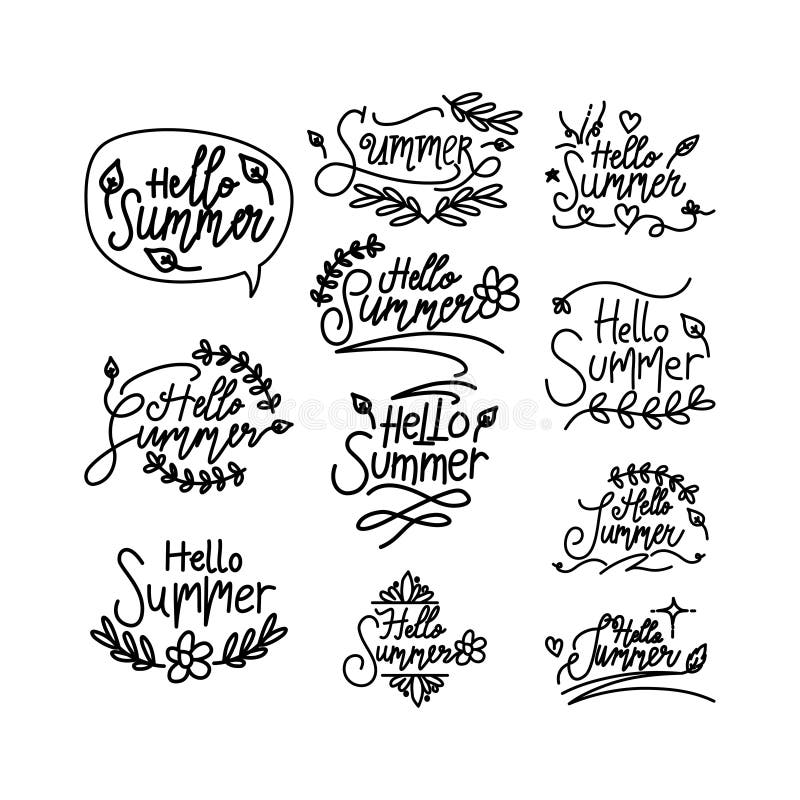 Hello
Summer
Summer
Hello
Summer
Hello
Summer
Hello
Summer
Hello
Summer
Hello
Summer
Hello
Summer
Hello
Summer
Hello
Summer
Hello
Summer
dreamstime